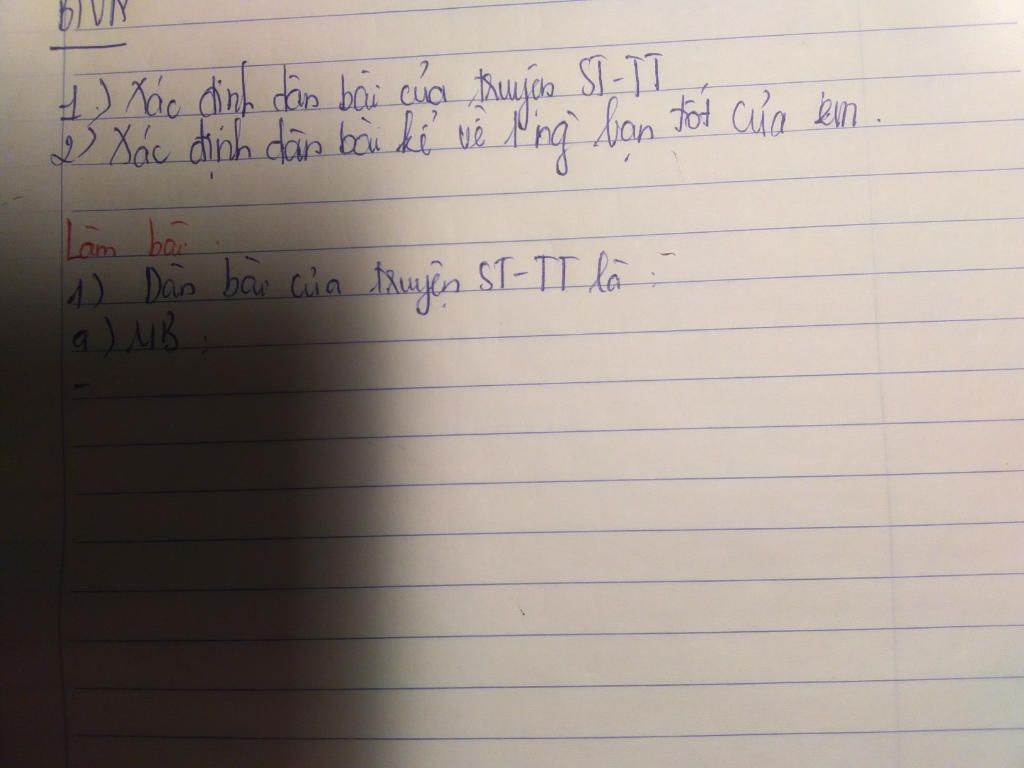 BTVN
1) Xác định dàn bài của truyện ST-TT
2) Xác định dàn bài kể về 1 ng` bạn tốt của em.
Làm bài:
1) Dàn bài của truyện ST-TT là :
a) MB :
-